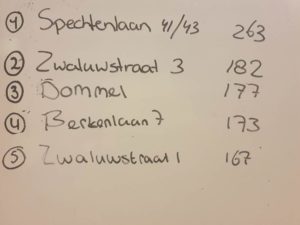 ① Spechtenlaan 41/43 263
② Zwaluwstraat 3 182
③ Dommel 177
④ Berkenlaan 7 173
⑤ Zwaluwstraat 1 167